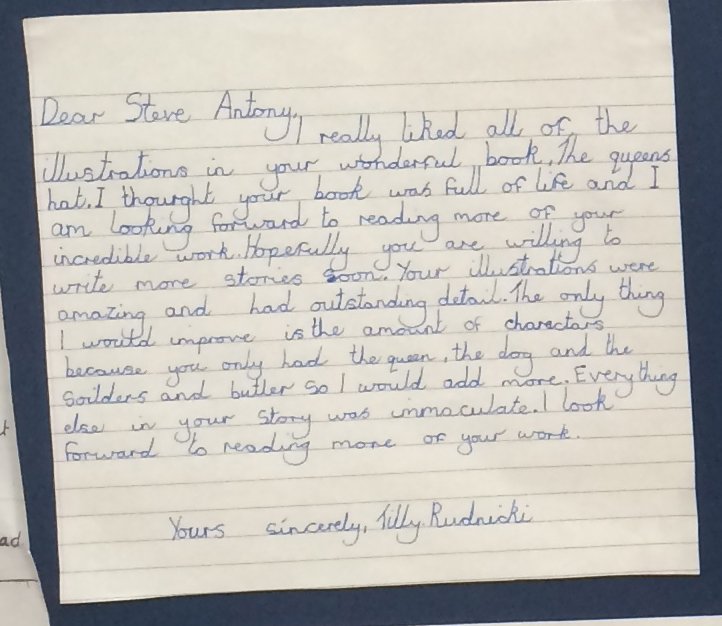 Dear Steve Antony,
I really liked all of the
illustrations in your wonderful book, The queens
hat. I thought your book was full of life and I
am looking forward to reading more of your
incredible work. Hopefully you are willing to
write more stories soon. Your illustrations were
amazing and had outstanding detail. The only thing
I would improve is the amount of charectars
because you only had the queen, the dog and the
soilders and butler so I would add more. Everything
else in your story was immaculate. I look
forward to reading more of your work.
Yours sincerely, Tilly Rudnicki
ad